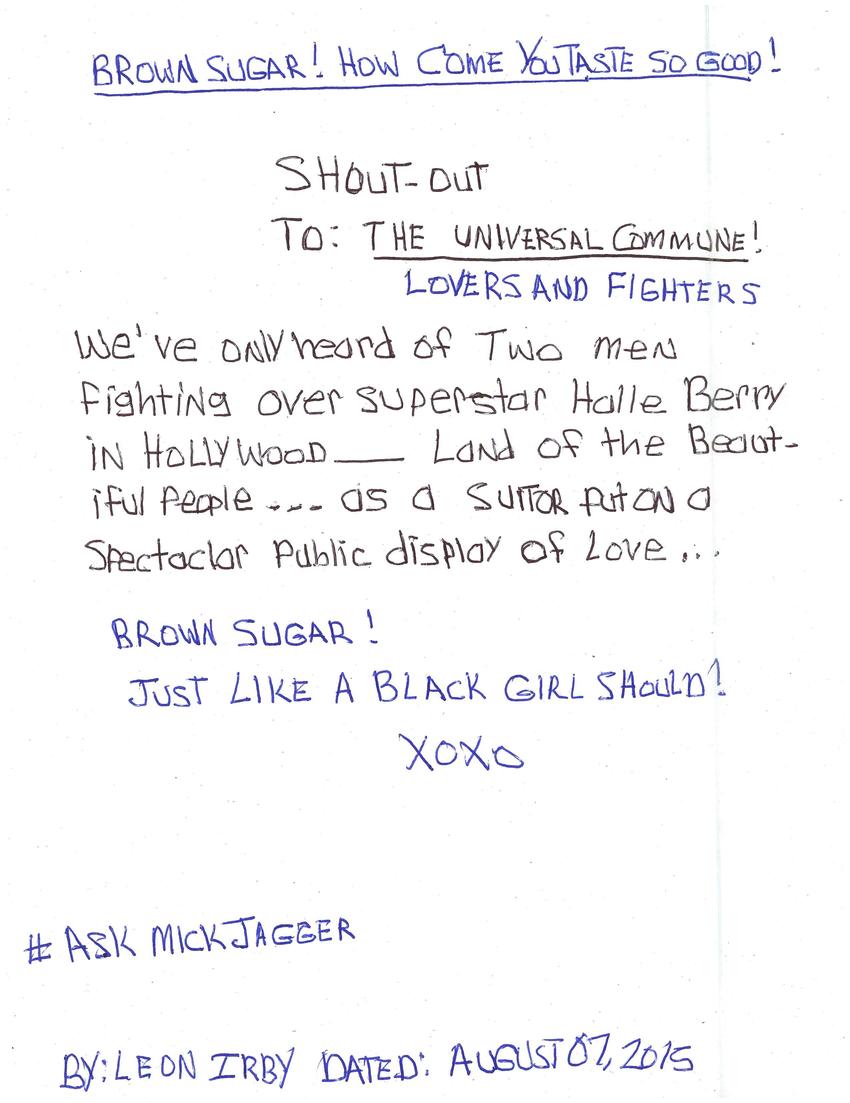 BROWN SUGAR! HOW COME YOU TASTE SO GOOD!
SHOUT-OUT
TO: THE UNIVERSAL COMMUNE!
LOVERS AND FIGHTERS
We've only heard of Two men
fighting over superstar Halle Berry
in HOLLYWOOD___ Land of the Beaut-
iful People ---- as a SUITOR put on a
Spectaclar Public display of Love ...
BROWN SUGAR!
JUST LIKE A BLACK GIRL SHOULD!
XOXO
# ASK MICK JAGGER
BY: LEON IRBY DATED: AUGUST 07, 2015